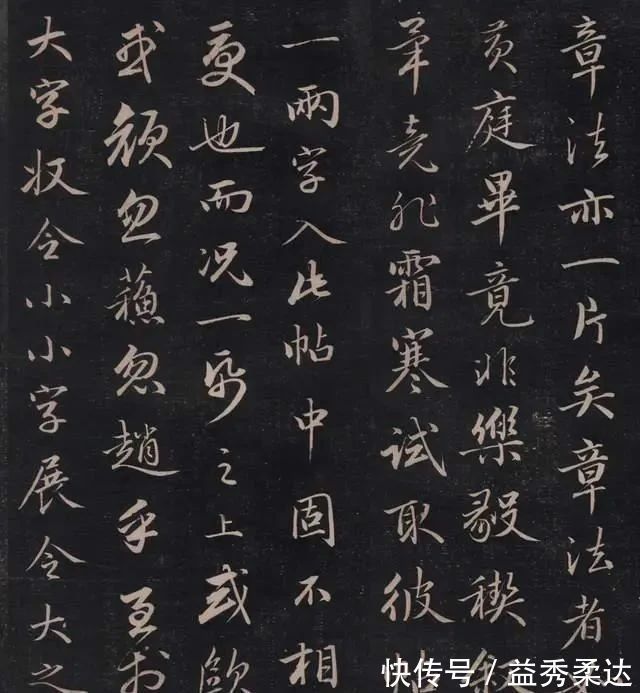 章法亦一片矣章法者
黄庭畢竟非樂毅稧
畢竟非霜寒試取彼帖
一兩字入此帖中固不相
受也而况一帋之上或歐
或顔忽蘇忽趙乎至於
大字收令小小字展令大之
快传号/益秀柔达